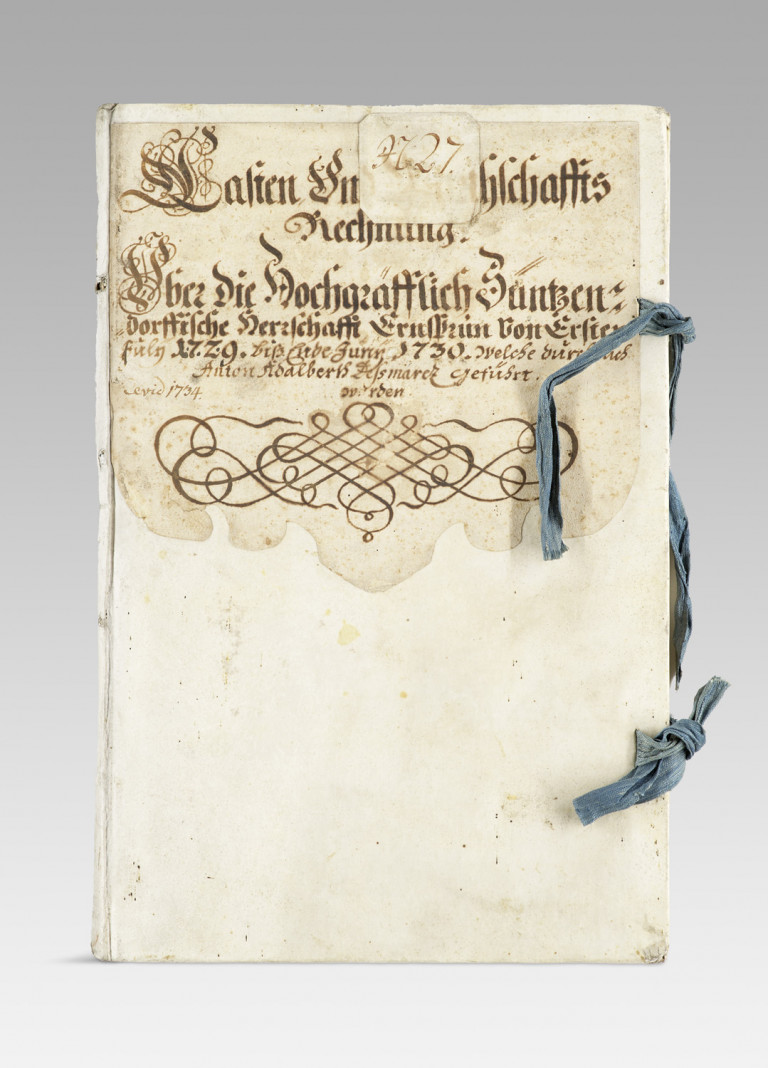 No 27.
Casten Un hschaffts
Rechnung.
Über die Hochgräfflich Süntzen=
dorffische Herrschafft Ernsbrun Von Ersten
July 1729. biß Ende Juny 1730. welche durch
Anton Adalberth geführt.
evid 1734 worden.